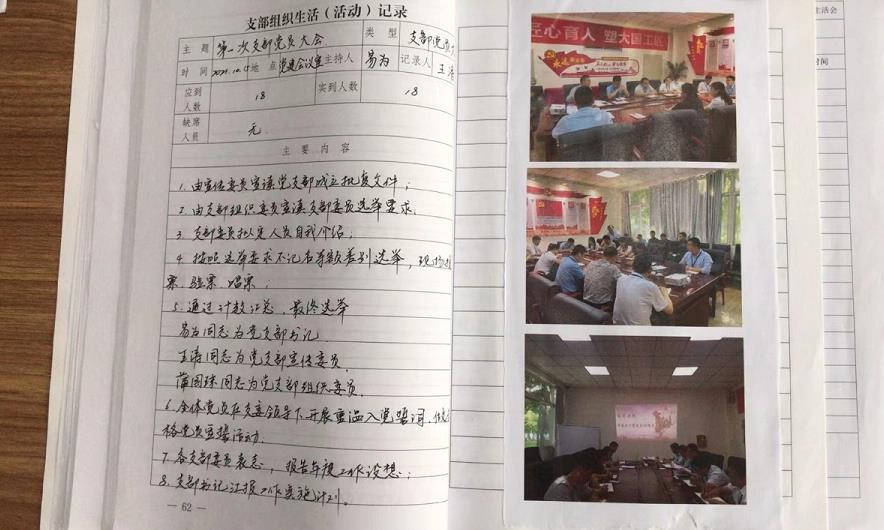 支部组织生活（活动）记录
主题 第一次支部党员大会 类型 支部党员
时间 地点 党建会议室 主持人 易为 记录人 王涛
应到人数 18 实到人数 18
缺席人员 无
主要内容
1. 由宣传委员宣读党支部成立批复文件；
2. 由支部组织委员宣读支部委员选举要求；
3. 支部委员拟定人员自我介绍；
4. 按照选举要求不记名等额差别选举，现场
票、验票、唱票；
5. 通过计数汇总，最终选举
易为同志为党支部书记
王涛同志为党支部宣传委员
蒲国珠同志为党支部组织委员
6. 全体党员在支委领导下开展重温入党誓词、
格党员宣誓活动.
7. 各支部委员表态，报告年度工作设想；
8. 支部书记汇报工作实施计划。
— 62 —
匠心育人 塑大国工匠
生活会
时间